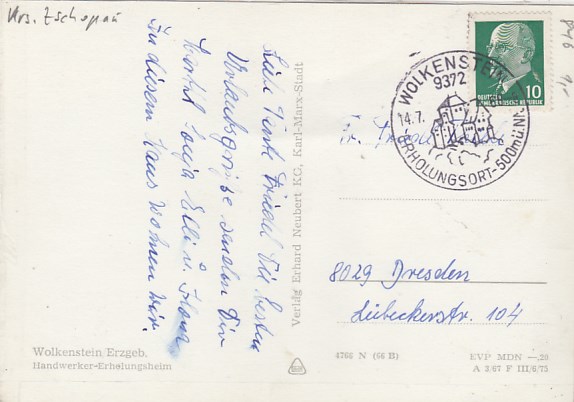 Krs. Zschopau
Liebe Tante Friedel die besten
Urlaubsgrüße senden Dir
Sonja Elli u.
In diesem Haus wohnen wir.
Verlag Erhard Neubert KG, Karl-Marx-Stadt
WOLKENSTEIN
9372
14.7.
ERHOLUNGSORT-500m ü. NN
10
DEUTSCHE
DEMOKRATISCHE REPUBLIK
Fr.
8029 Dresden
Lübeckerstr. 104
Wolkenstein/Erzgeb.
Handwerker-Erholungsheim
4766 N (66 B)
EVP MDN —.20
A 3/67 F III/6/75